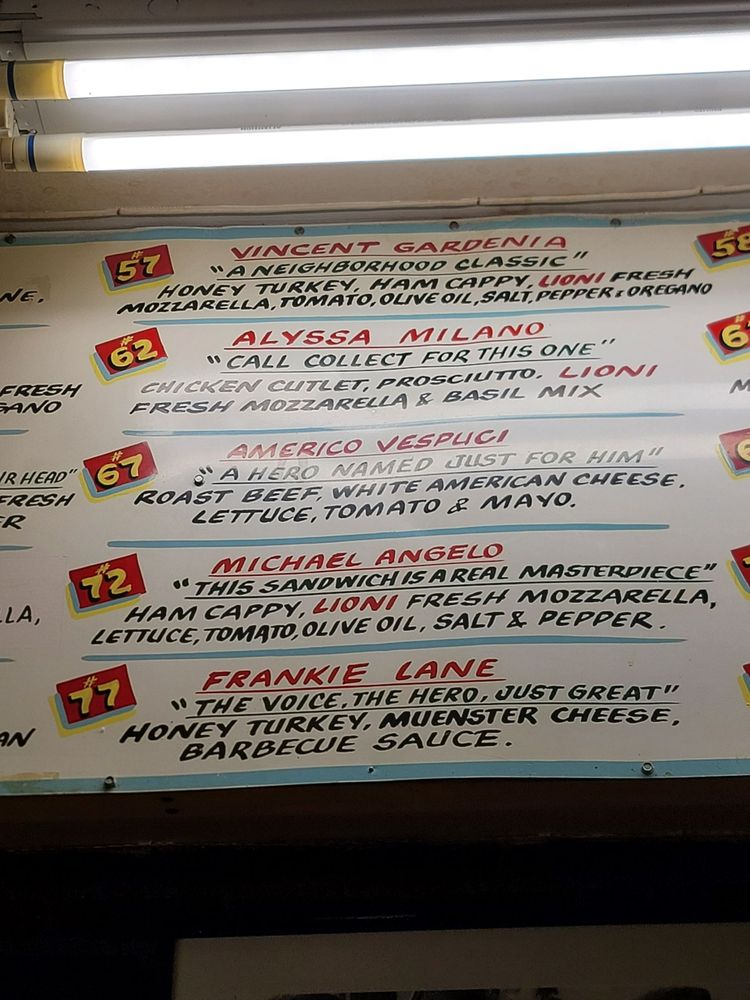 #57 VINCENT GARDENIA
"A NEIGHBORHOOD CLASSIC"
HONEY TURKEY, HAM CAPPY, LIONI FRESH
MOZZARELLA, TOMATO, OLIVE OIL, SALT, PEPPER & OREGANO
#62 ALYSSA MILANO
"CALL COLLECT FOR THIS ONE"
CHICKEN CUTLET, PROSCIUTTO, LIONI
FRESH MOZZARELLA & BASIL MIX
#67 AMERICO VESPUCI
"A HERO NAMED JUST FOR HIM"
ROAST BEEF, WHITE AMERICAN CHEESE,
LETTUCE, TOMATO & MAYO.
#72 MICHAEL ANGELO
"THIS SANDWICH IS A REAL MASTERPIECE"
HAM CAPPY, LIONI FRESH MOZZARELLA,
LETTUCE, TOMATO, OLIVE OIL, SALT & PEPPER.
#77 FRANKIE LANE
"THE VOICE, THE HERO, JUST GREAT"
HONEY TURKEY, MUENSTER CHEESE,
BARBECUE SAUCE.
FRESH
HEAD"
FRESH
#58